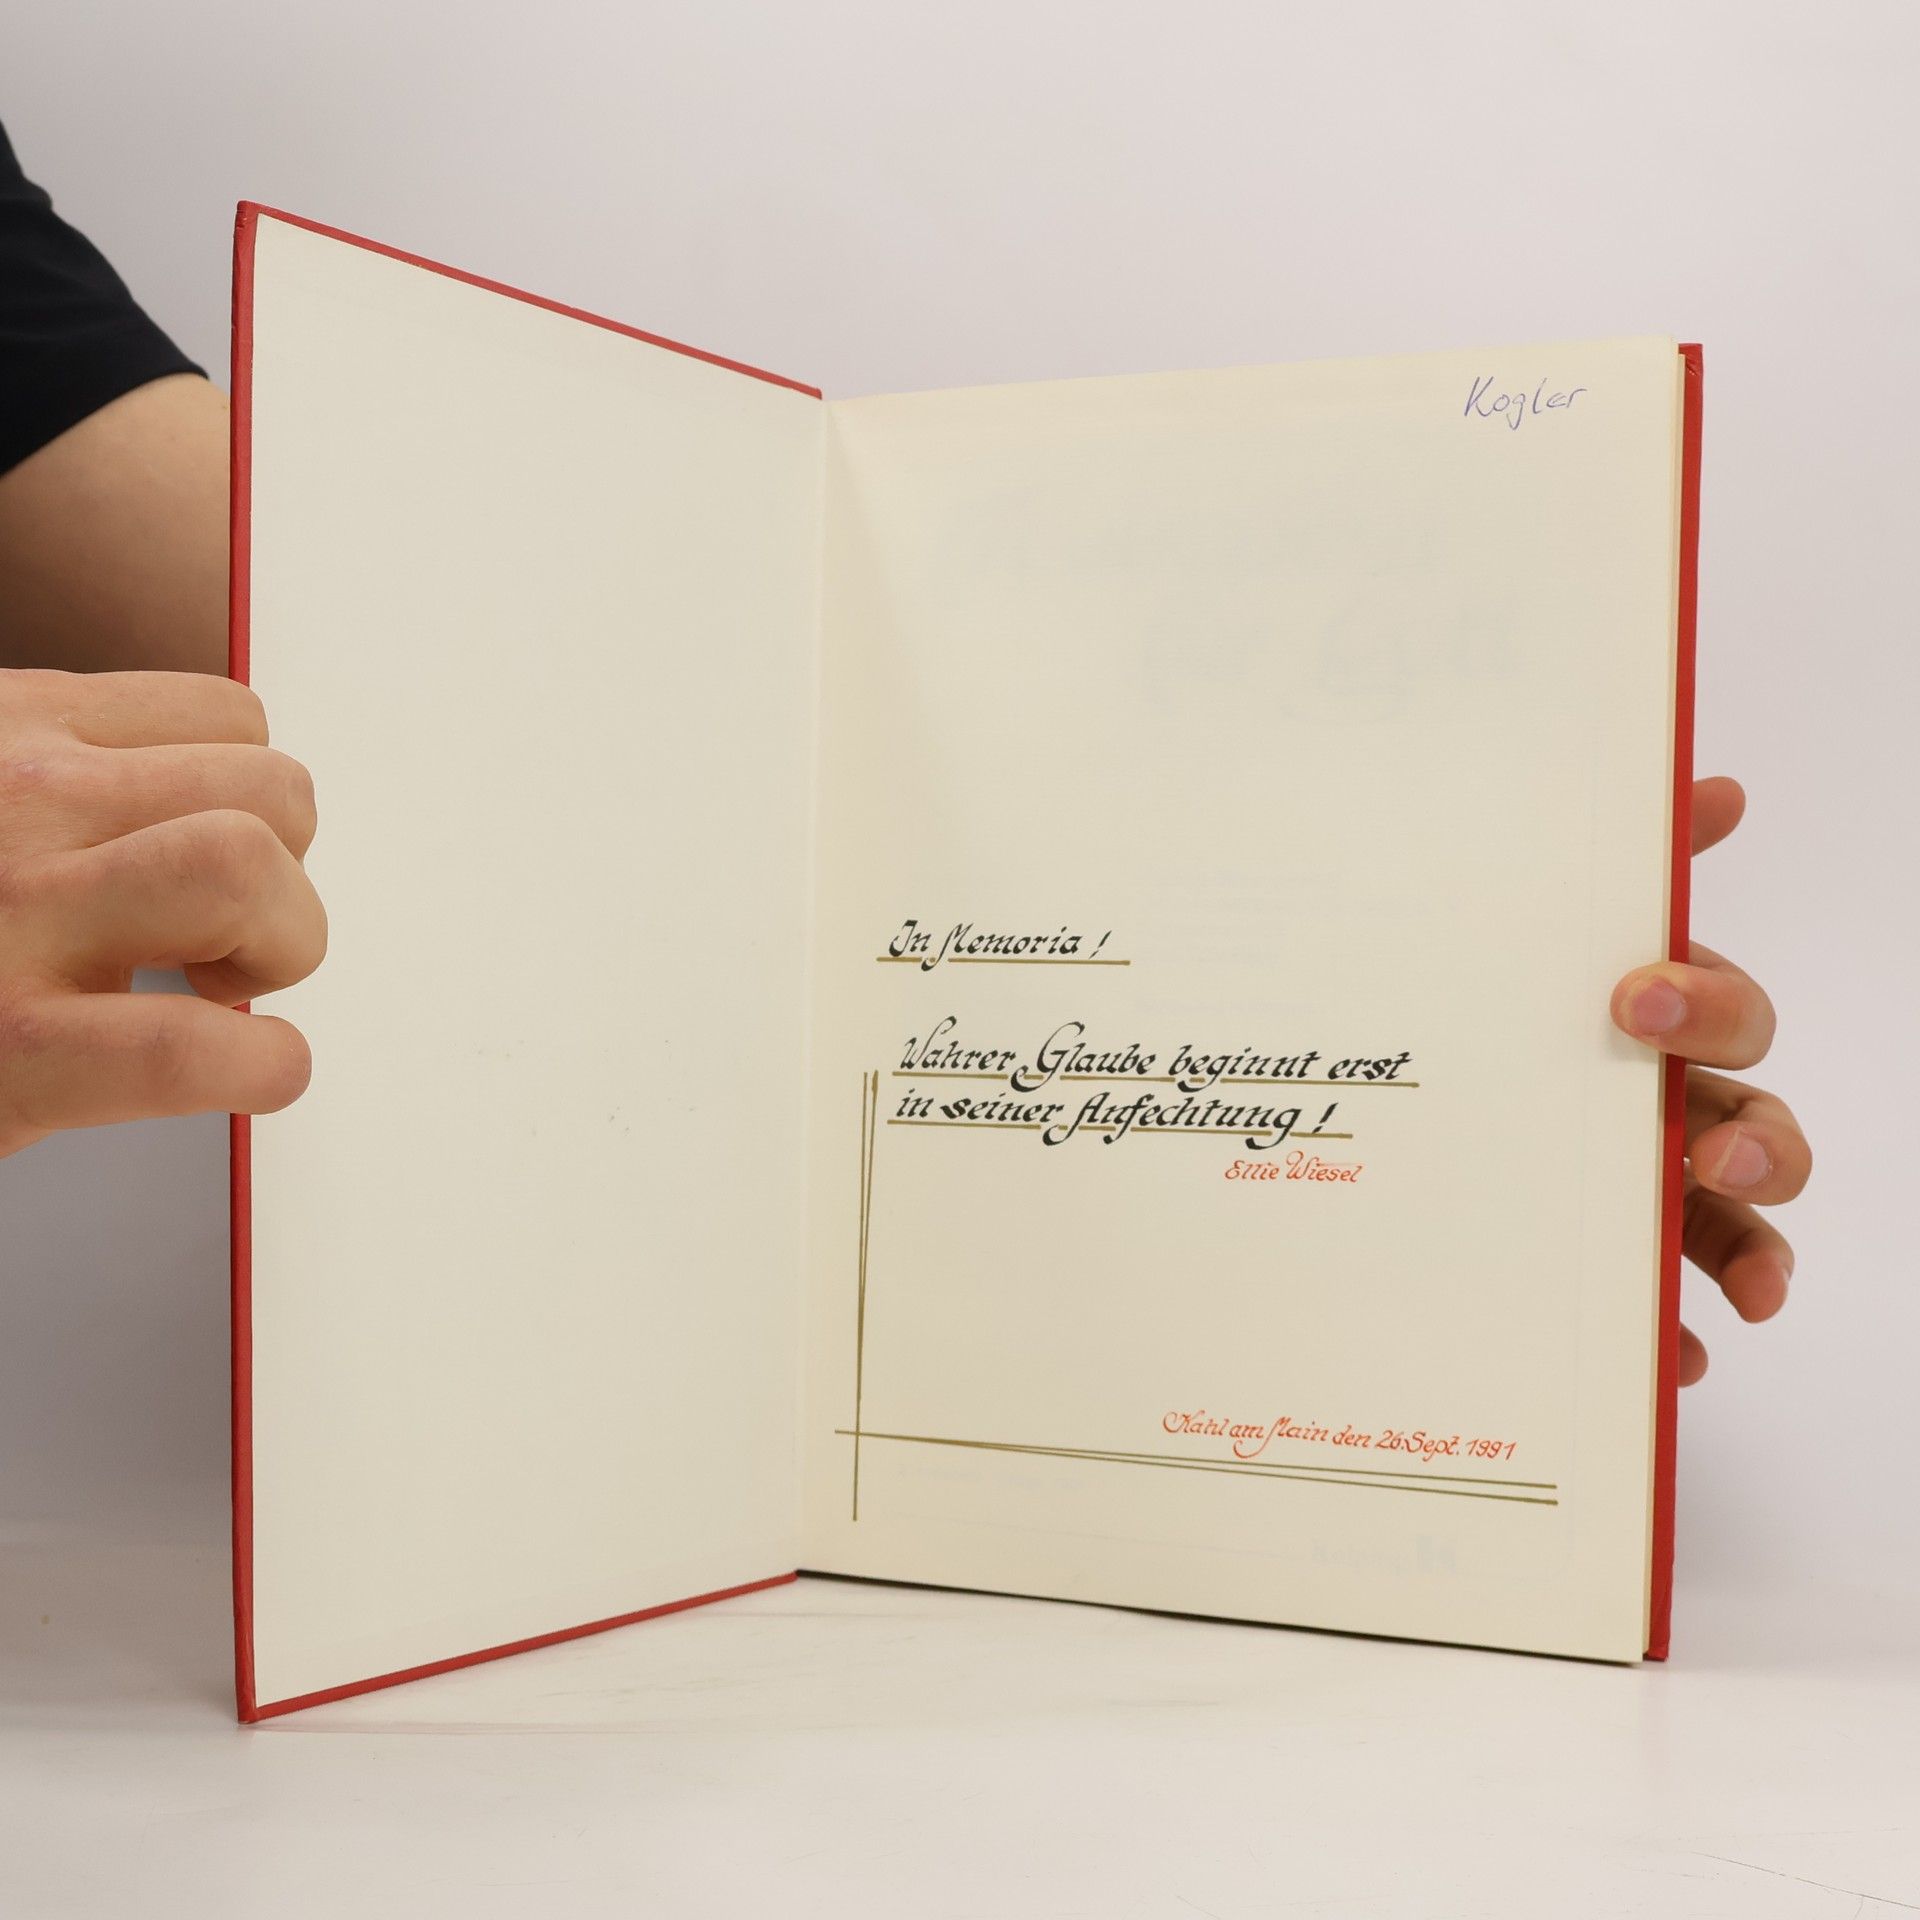 Kogler
In Memoria !
Wahrer Glaube beginnt erst
in seiner Anfechtung !
Ellie Wiesel
Kahl am Main den 26. Sept. 1991